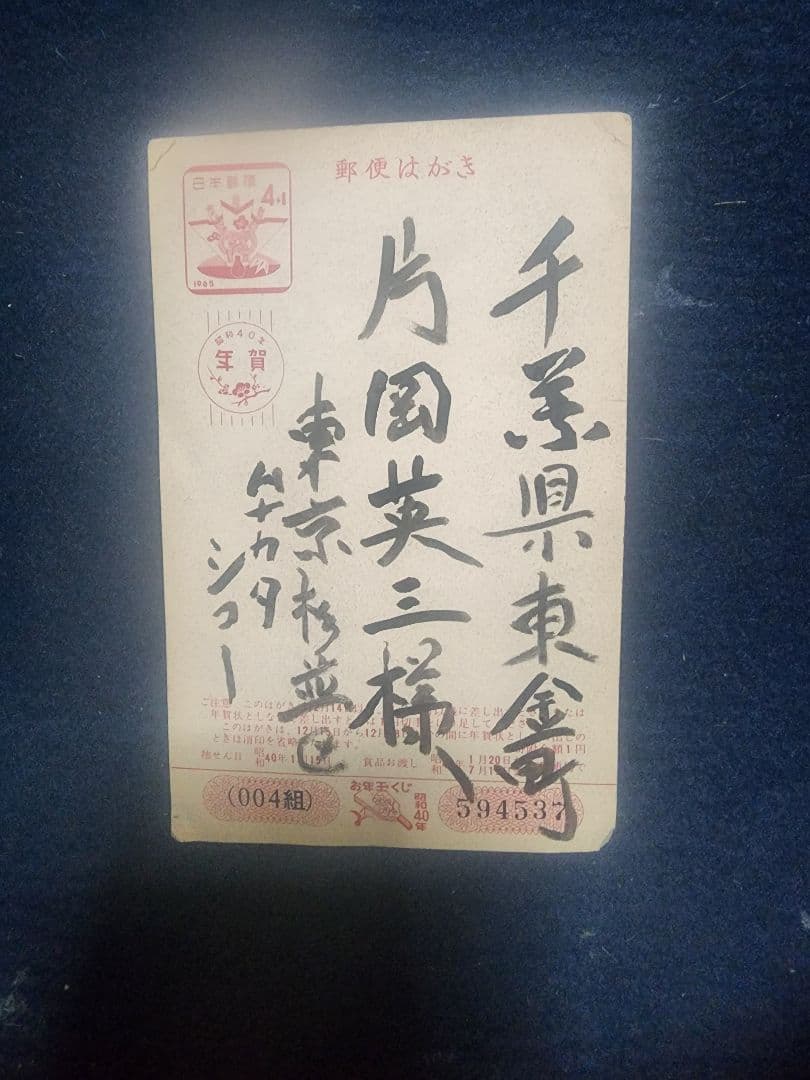 郵便はがき
日本郵便
4+1
1965
昭和40年
年賀
千葉県東金町
片岡英三様
東京杉並区
ムナカタ
シコー
ご注意 このはがき
年賀状とし
このはがきは、12月15日から12月
ときは消印を省略 ます。
抽せん日 昭和40年1月15日
賞品お渡し 昭和 年1月20日
7月1
額1円
(004組)
お年玉くじ
昭和40年
594537